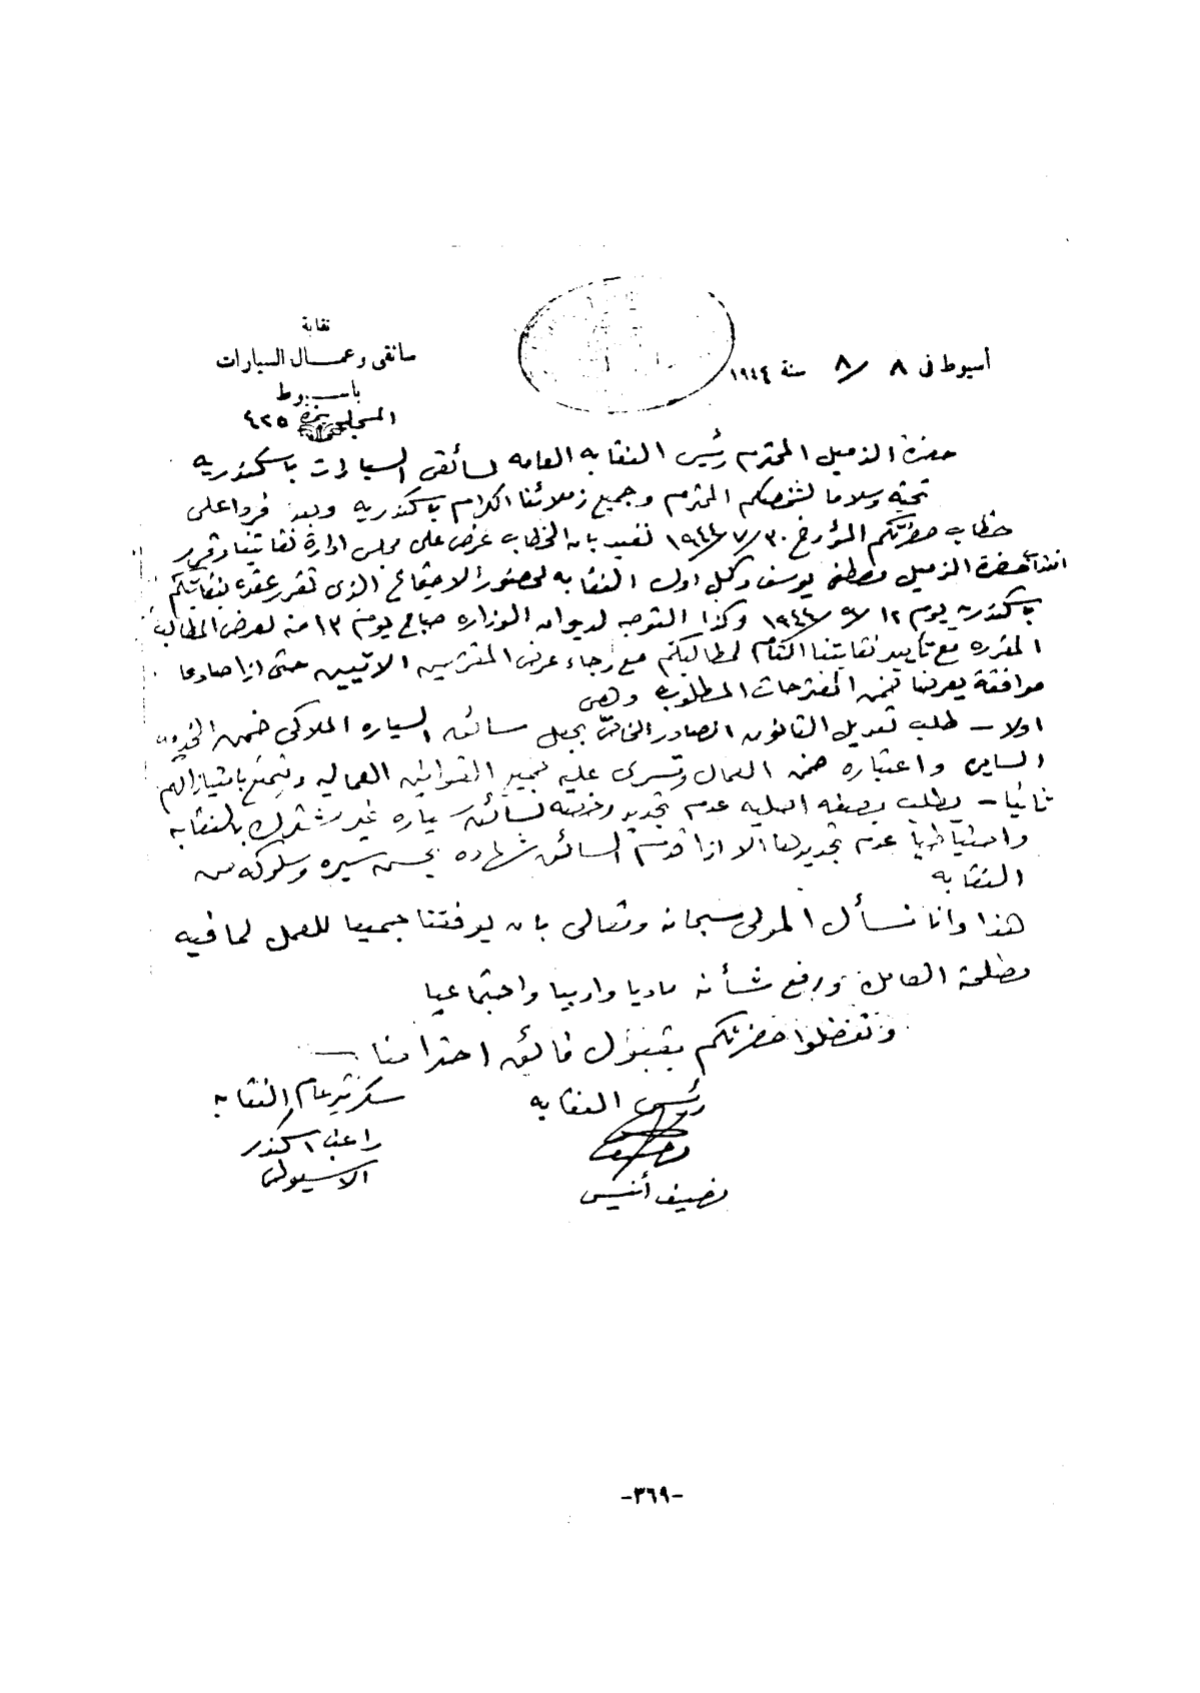 نقابة
سائقى وعمال السيارات
باسيوط
المسجله بنمرة ٤٢٥
أسيوط فى ٨ / ٨ سنة ١٩٤٤
حضرة الزميل المحترم رئيس النقابه العامه لسائقى السيارات باسكندريه
تحية وسلاما لشخصكم المحترم وجميع زملائنا الكرام باسكندريه وبعد فردا على
خطاب حضرتكم المؤرخ ٣٠/٧/١٩٤٤ نفيد بان الخطاب عرض على مجلس ادارة نقابتنا وقرر
انتداب حضرة الزميل مصطفى يوسف وكيل اول النقابه لحضور الاجتماع الذى تقرر عقده بنقابتكم
باسكندريه يوم ١٢/ /١٩٤٤ وكذا التوجه لديوان الوزاره صباح يوم ١٣ منه لعرض المطالب
المقرره مع تأييد نقابتنا التام لمطالبكم مع رجاء عرض المقترحين الاتيين حتى اذا صادفا
موافقة يعرضا ضمن المقترحات المطلوبه وهى
اولا - طلب تعديل القانون الصادر الخاص بجعل سائق السياره الملاكى ضمن الخدم
السايرين واعتباره ضمن العمال وتسرى عليه جميع القوانين العماليه ويتمتع بامتيازاتهم
ثانيا - يطلب بصفه اصليه عدم تجديد رخصه لسائق سياره غير مشترك بالنقابه
واحتياطيا عدم تجديدها الا اذا قدم السائق شهاده بحسن سيره وسلوكه من
النقابه
هذا وانا نسأل المولى سبحانه وتعالى بان يوفقنا جميعا للعمل لما فيه
مصلحة العامل ورفع شأنه ماديا وادبيا واجتماعيا
وتفضلوا حضرتكم بقبول فائق احترامنا
رئيس النقابه
نصيف أنيس
سكرتير عام النقابه
راغب اسكندر
الاسيوطى
-٣٦٩-